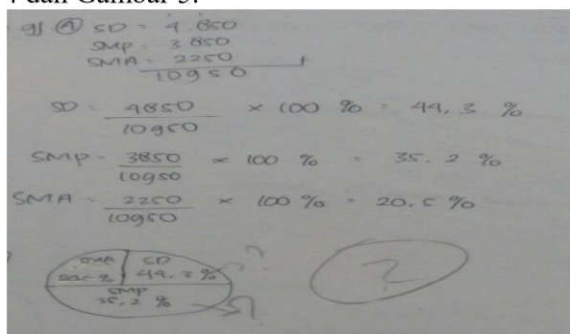 9) a SD = 4.850
SMP = 3 850
SMA = 2250 +
10950
SD = 4850 / 10950 × 100 % = 44,3 %
SMP = 3850 / 10950 × 100 % = 35.2 %
SMA = 2250 / 10950 × 100 % = 20,5 %
SMA SD
44,3 % ?
SMP
35,2 % ?
2